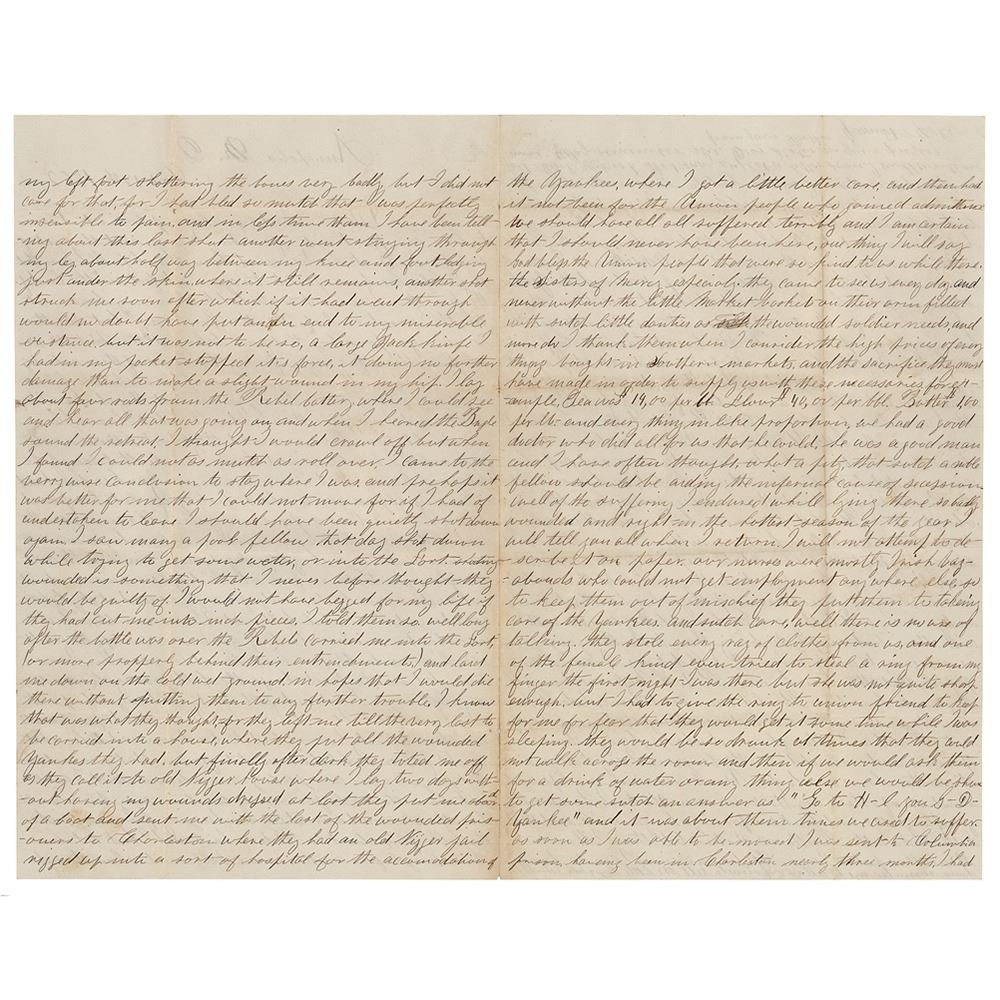 my left foot shattering the bones very badly but I did not
care for that, for I had bled so mutch that I was perfectly
insensible to pain, and in less time than I have been tell-
ing about this last shot another went stinging through
my leg about half way between my knee and foot lodging
just under the skin where it still remains, another shot
struck me soon after which if it had went through
would no doubt have put an end to my miserible
existence, but it was not to be so, a large Jack kinfe I
had in my pocket stopped its force, it doing no further
damage than to make a slight wound in my hip. I lay
about four rods from the Rebel battery where I could see
and hear all that was going on, and when I heared the Bugle
sound the retreat, I thought I would crawl off but when
I found I could not as mutch as roll over, I came to the
very wise conclusion to stay where I was, and prehaps it
was better for me that I could not move for if I had of
undertaken to leave I should have been quietly shot down
again. I saw many a poor fellow that day shot down
while trying to get some water, or into the Fort. shooting
wounded is something that I never before thought they
would be guilty of I would not have begged for my life if
they had cut me into inch pieces. I told them so. well long
after the battle was over the Rebels carried me into the Fort,
(or more propperly behind their entrenchments,) and laid
me down on the cold wet ground in hopes that I would die
there without putting them to any further trouble, I know
that was what they thought for they left me till the very last to
be carried into a house, where they put all the wounded
Yankes they had, but finally after dark they toted me off
as they call it to old Nigger house where I lay two days with-
out having my wounds dressed at last they put me aboard
of a boat and sent me with the last of the wounded pris-
oners to Charleston where they had an old Nigger jail
rigged up into a sort of hospital for the accomodation of
the Yankees, where I got a little better care, and then had
it not been for the Union people who gained admittance
we should have all all suffered terribly and I am certain
that I should never have been here, one thing I will say
God bless the Union people that were so kind to us while there.
the Sisters of Mercy especialy. they came to see us every day, and
never without the little Market basket on thier arm filled
with sutch little danties as the wounded soldier needs, and
more do I thank them when I consider the high prices of every
thing bought in Southern markets, and the sacrifice they must
have made in order to supply us with these necessaries for ex-
ample, Tea was $14,00 per lb. Flour $40,00 per bbl. Butter $1,00
per lb. and every thing in like proportion, we had a good
doctor who did all for us that he could, he was a good man
and I have often thought, what a pity, that sutch a noble
fellow should be aiding the infernal cause of secession
well of the suffering I endured while lying there so badly
wounded and right in the hottest season of the year I
will tell you all when I return, I will not attempt to de-
scribe it on paper. our nurses were mostly Irish vag-
abonds who could not get employment anywhere else, so
to keep them out of mischief they putt them to takeing
care of the Yankees, and sutch care, well there is no use of
talking. they stole every rag of clothes from us, and one
of the female kind even tried to steal a ring from my
finger the first night I was there but she was not quite sharp
enough, but I had to give the ring to union friend to keep
for me for fear that they would get it some time while I was
sleeping. they would be so drunk at times that they could
not walk across the room and then if we would ask them
for a drink of water or any thing else we would be shure
to get some sutch an answer as "Go to H-l you G-D-
Yankee" and it was about them times we used to suffer.
as soon as I was able to be moved I was sent to Columbia
prison, having been in Charleston nearly three months, I had